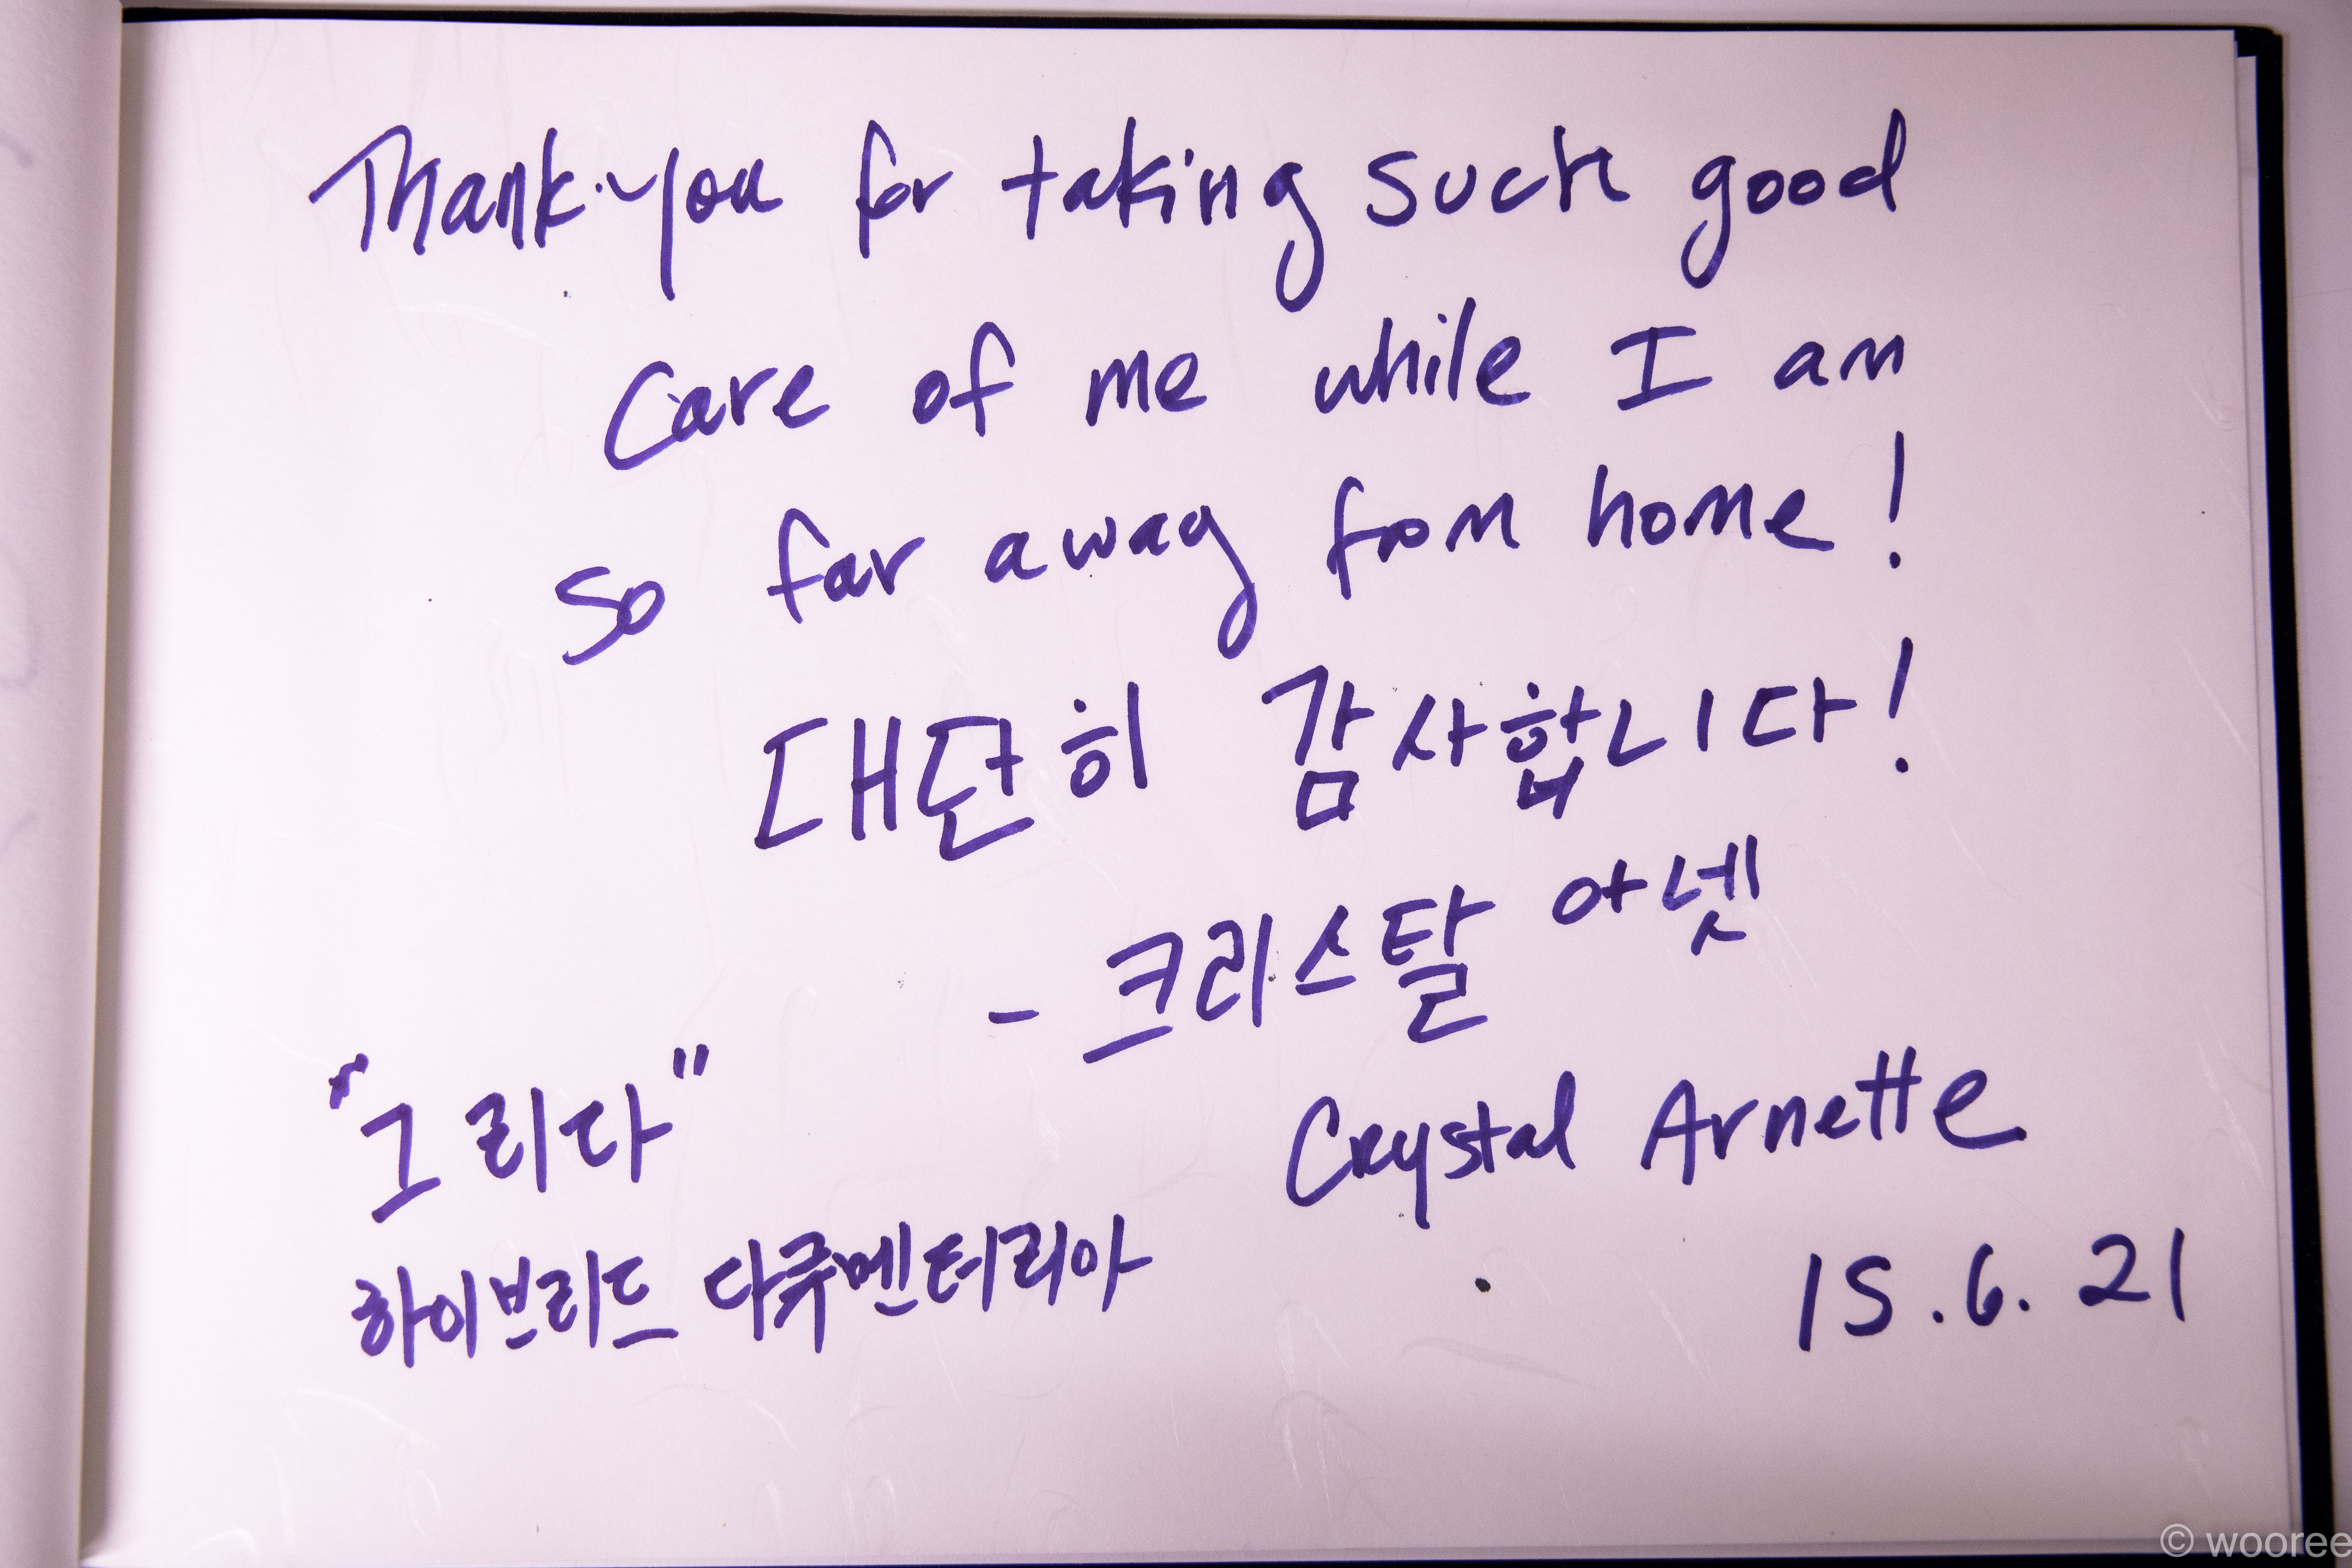 Thank-you for taking such good
care of me while I am
so far away from home!
대단히 감사합니다!
- 크리스탈 아넷
"그리다"
Crystal Arnette
하이브리드 다큐멘터리아
15.6.21
© wooree